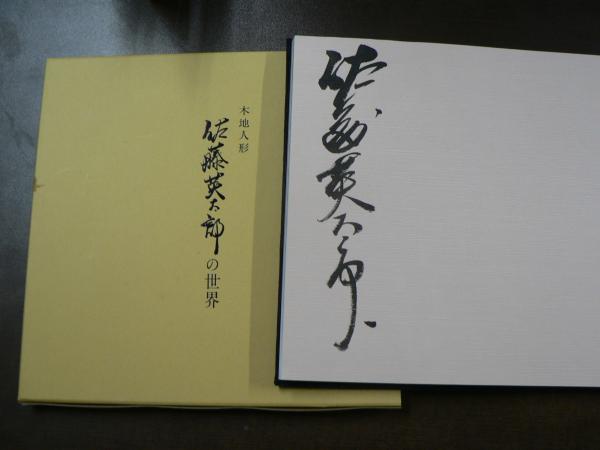 木地人形
佐藤英太郎の世界
佐藤英太郎